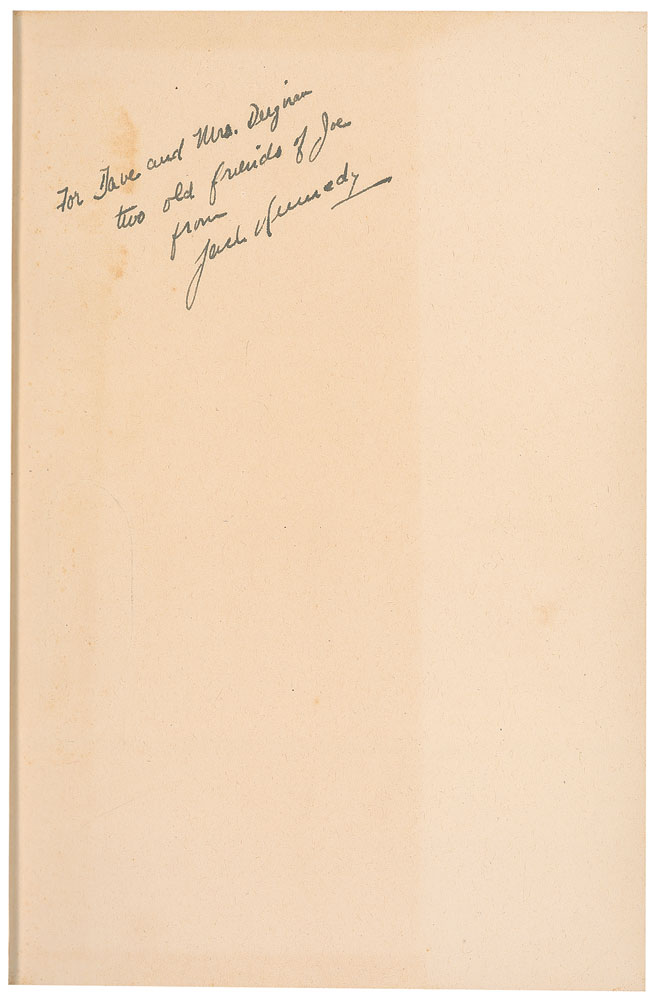 For Dave and Mrs. Deignan
two old friends of Joe
from
Jack Kennedy